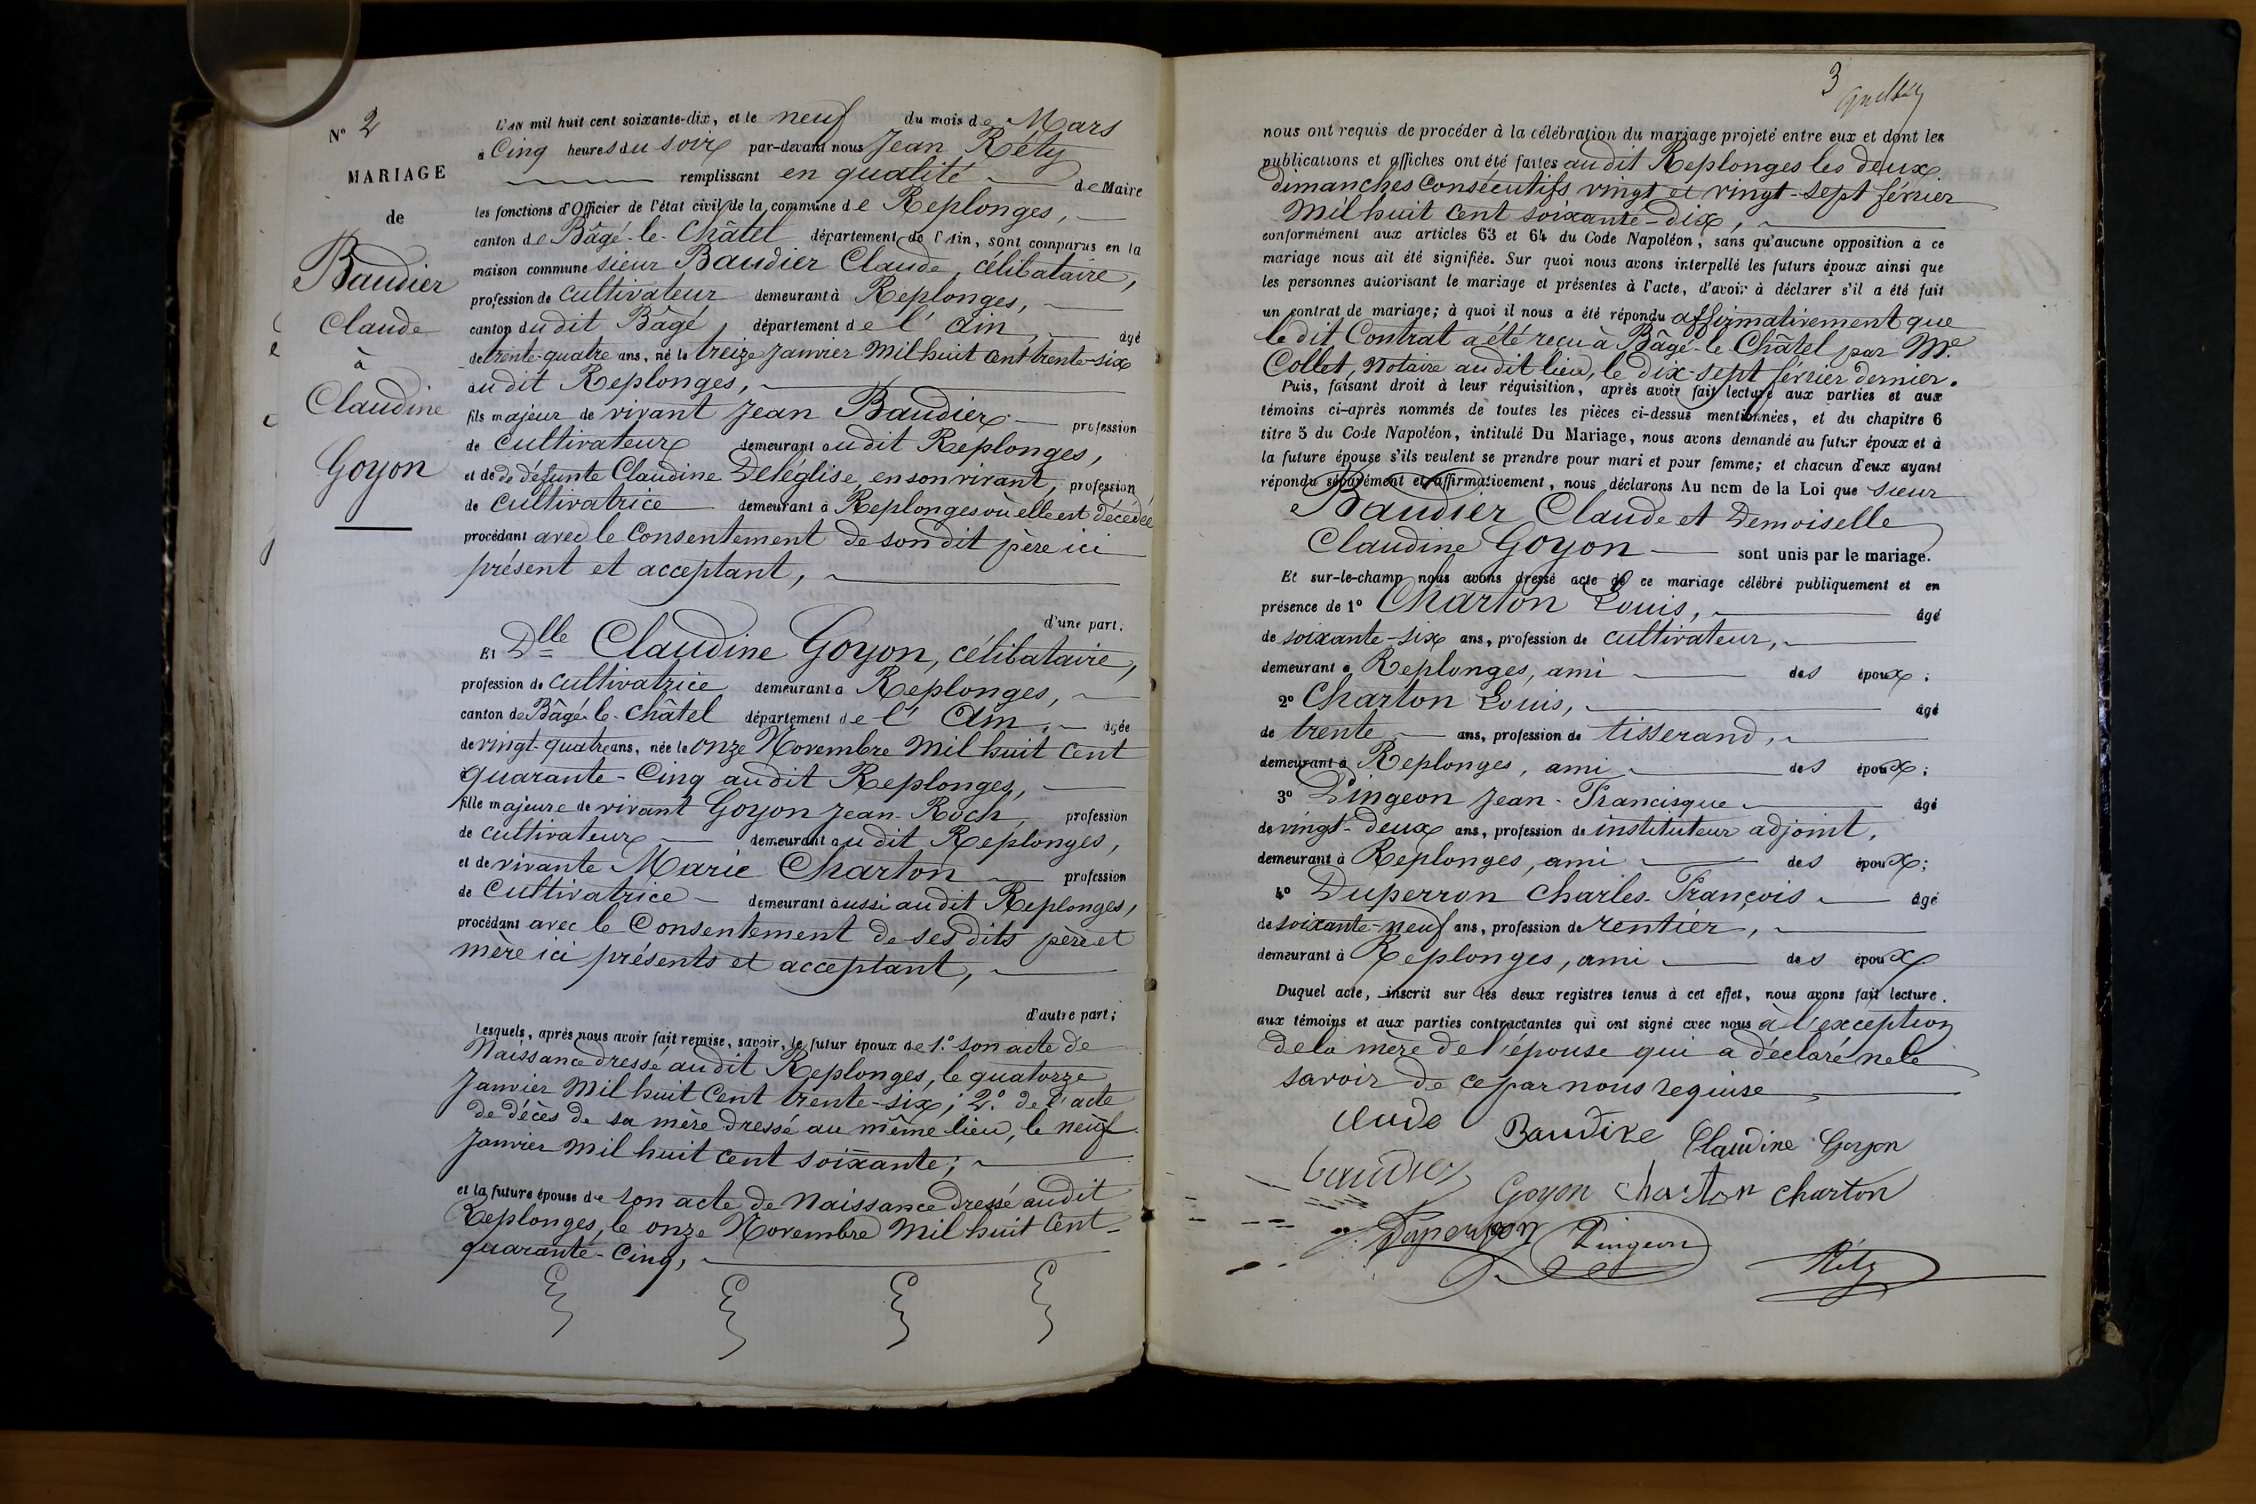 N° 2
MARIAGE
de
Baudier
Claude
à
Claudine
Goyon
L'AN mil huit cent soixante-dix, et le neuf du mois de Mars
à Cinq heures du soir par-devant nous Jean Réty
remplissant en qualité de Maire
les fonctions d'Officier de l'état civil de la commune de Replonges,
canton de Bâgé-le-Châtel département de l'Ain, sont comparus en la
maison commune sieur Baudier Claude, célibataire,
profession de cultivateur demeurant à Replonges,
canton dudit Bâgé, département de l'Ain, agé
de trente-quatre ans, né le treize Janvier Mil huit cent trente-six
audit Replonges,
fils majeur de vivant Jean Baudier profession
de cultivateur demeurant audit Replonges,
et de de défunte Claudine Deléglise, en son vivant, profession
de cultivatrice demeurant à Replonges où elle est décédée
procédant avec le Consentement de son dit père ici
présent et acceptant,
d'une part;
Et Dlle Claudine Goyon, célibataire,
profession de cultivatrice demeurant à Replonges,
canton de Bâgé-le-Châtel département de l'Ain, agée
de vingt-quatre ans, née le onze Novembre Mil huit Cent
quarante-Cinq audit Replonges,
fille majeure de vivant Goyon Jean-Roch, profession
de cultivateur demeurant audit Replonges,
et de vivante Marie Charton profession
de Cultivatrice demeurant aussi audit Replonges,
procédant avec le Consentement de ses dits père et
mère ici présents et acceptant,
d'autre part;
Lesquels, après nous avoir fait remise, savoir, le futur époux de 1.° son acte de
Naissance dressé audit Replonges, le quatorze
Janvier Mil huit Cent trente-six; 2.° de l'acte
de décès de sa mère dressé au même lieu, le neuf
Janvier Mil huit Cent soixante;
et la future épouse de son acte de Naissance dressé audit
Replonges, le onze Novembre Mil huit Cent-
quarante-Cinq,
3
nous ont requis de procéder à la célébration du mariage projeté entre eux et dont les
publications et affiches ont été faites audit Replonges les deux
dimanches Consécutifs vingt et vingt-sept février
Mil huit Cent soixante-dix,
conformément aux articles 63 et 64 du Code Napoléon, sans qu'aucune opposition à ce
mariage nous ait été signifiée. Sur quoi nous avons interpellé les futurs époux ainsi que
les personnes autorisant le mariage et présentes à l'acte, d'avoir à déclarer s'il a été fait
un contrat de mariage; à quoi il nous a été répondu affirmativement que
le dit Contrat a été reçu à Bâgé-le Châtel par Me.
Collet, Notaire audit lieu, le dix-sept février dernier.
Puis, faisant droit à leur réquisition, après avoir fait lecture aux parties et aux
témoins ci-après nommés de toutes les pièces ci-dessus mentionnées, et du chapitre 6
titre 5 du Code Napoléon, intitulé Du Mariage, nous avons demandé au futur époux et à
la future épouse s'ils veulent se prendre pour mari et pour femme; et chacun d'eux ayant
répondu séparément et affirmativement, nous déclarons Au nom de la Loi que sieur
Baudier Claude et Demoiselle
Claudine Goyon sont unis par le mariage.
Et sur-le-champ nous avons dressé acte de ce mariage célébré publiquement et en
présence de 1° Charton Louis, agé
de soixante-six ans, profession de cultivateur,
demeurant à Replonges, ami des époux;
2° Charton Louis, agé
de trente ans, profession de tisserand,
demeurant à Replonges, ami des époux;
3° Pingeon Jean-Francisque agé
de vingt-deux ans, profession de instituteur adjoint,
demeurant à Replonges, ami des époux;
4° Duperron Charles-François agé
de soixante-neuf ans, profession de rentier,
demeurant à Replonges, ami des époux
Duquel acte, inscrit sur les deux registres tenus à cet effet, nous avons fait lecture
aux témoins et aux parties contractantes qui ont signé avec nous à l'exception
de la mère de l'épouse qui a déclaré ne le
savoir de ce par nous requise
Claudine Goyon
Goyon Charton Charton
Duperron Pingeon Réty